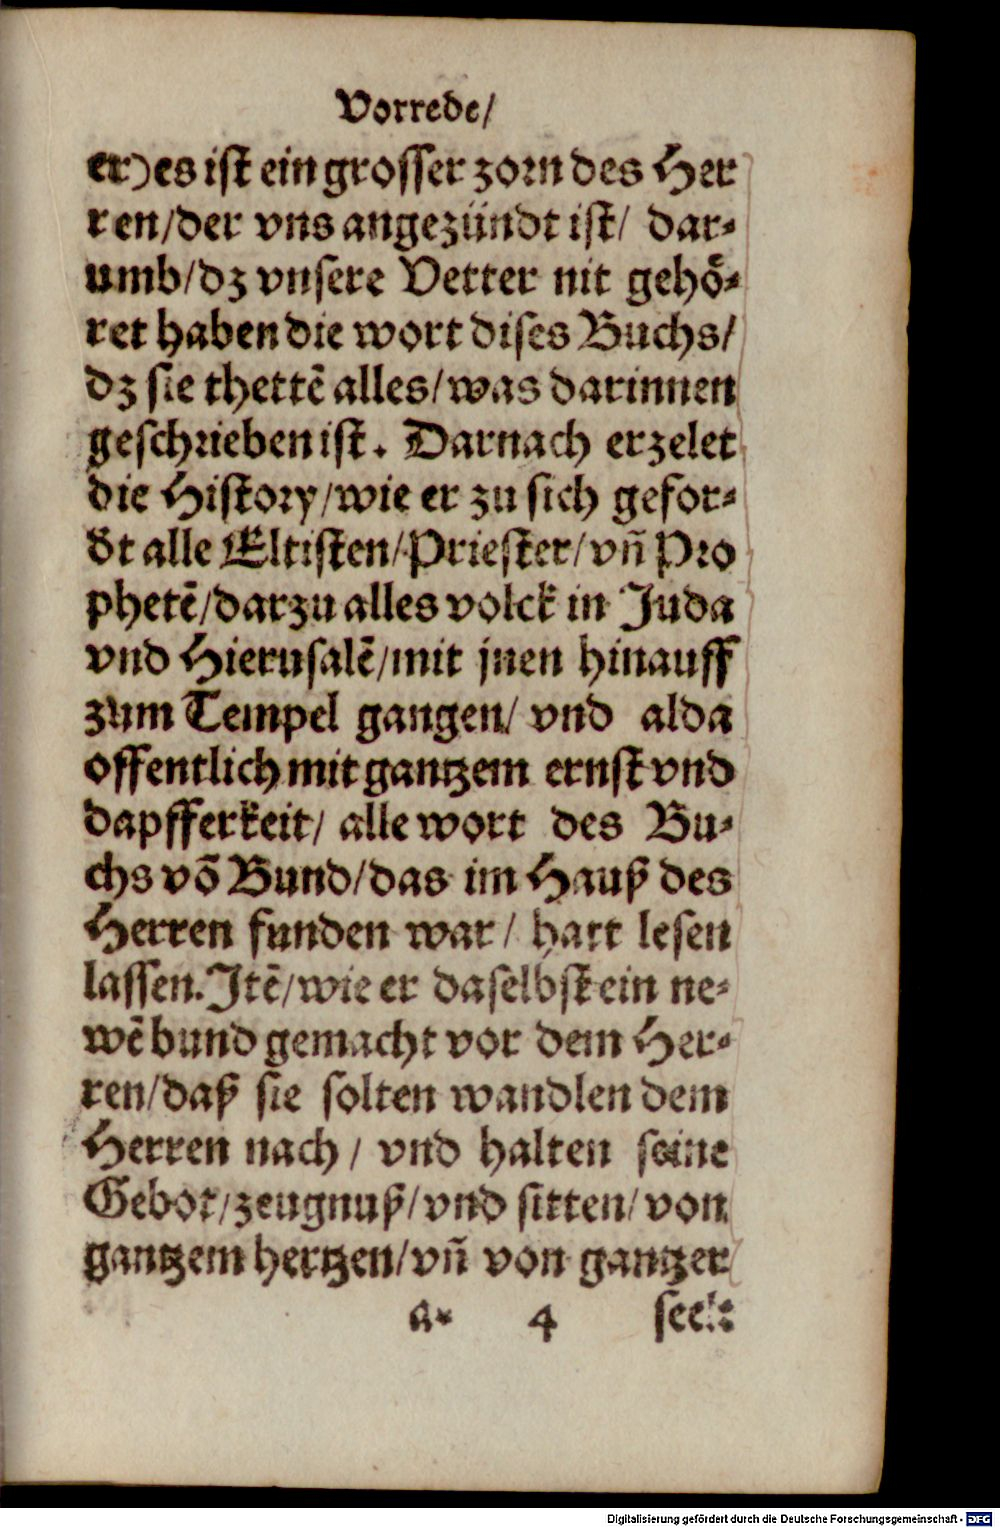 Vorrede/
er) es ist ein grosser zorn des Her
ren/der vns angezündt ist/ dar-
umb/dz vnsere Vetter nit gehö-
ret haben die wort dises Buchs/
dz sie thettē alles/was darinnen
geschrieben ist. Darnach erzelet
die History/wie er zu sich gefor-
dt alle Eltisten/Priester/vñ Pro
phetē/darzu alles volck in Juda
vnd Hierusalē/mit jnen hinauff
zum Tempel gangen/ vnd alda
offentlich mit gantzem ernst vnd
dapfferkeit/ alle wort des Bu-
chs võ Bund/das im Hauß des
Herren funden war/ hart lesen
lassen. Jtē/wie er daselbst ein ne-
wē bund gemacht vor dem Her-
ren/daß sie solten wandlen dem
Herren nach/ vnd halten seine
Gebot/zeugnuß/vnd sitten/von
gantzem hertzen/vñ von gantzer
a 4 seele
Digitalisierung gefördert durch die Deutsche Forschungsgemeinschaft - DFG